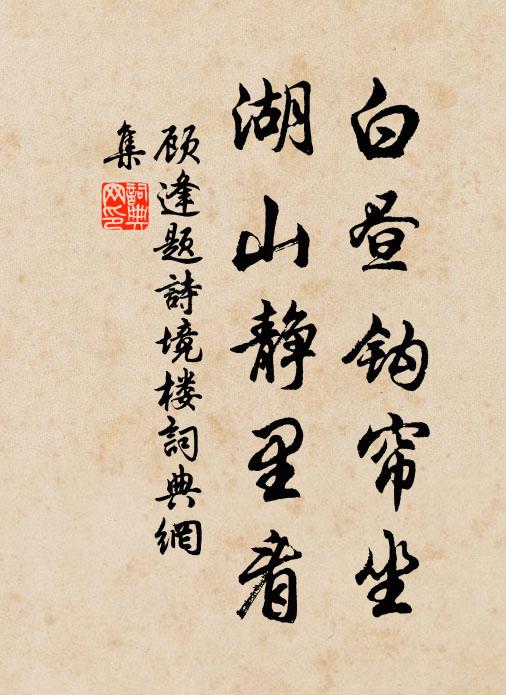 白昼钩帘坐
湖山静里看
顾逢题詩境楼詞典網
集
詞典
网印